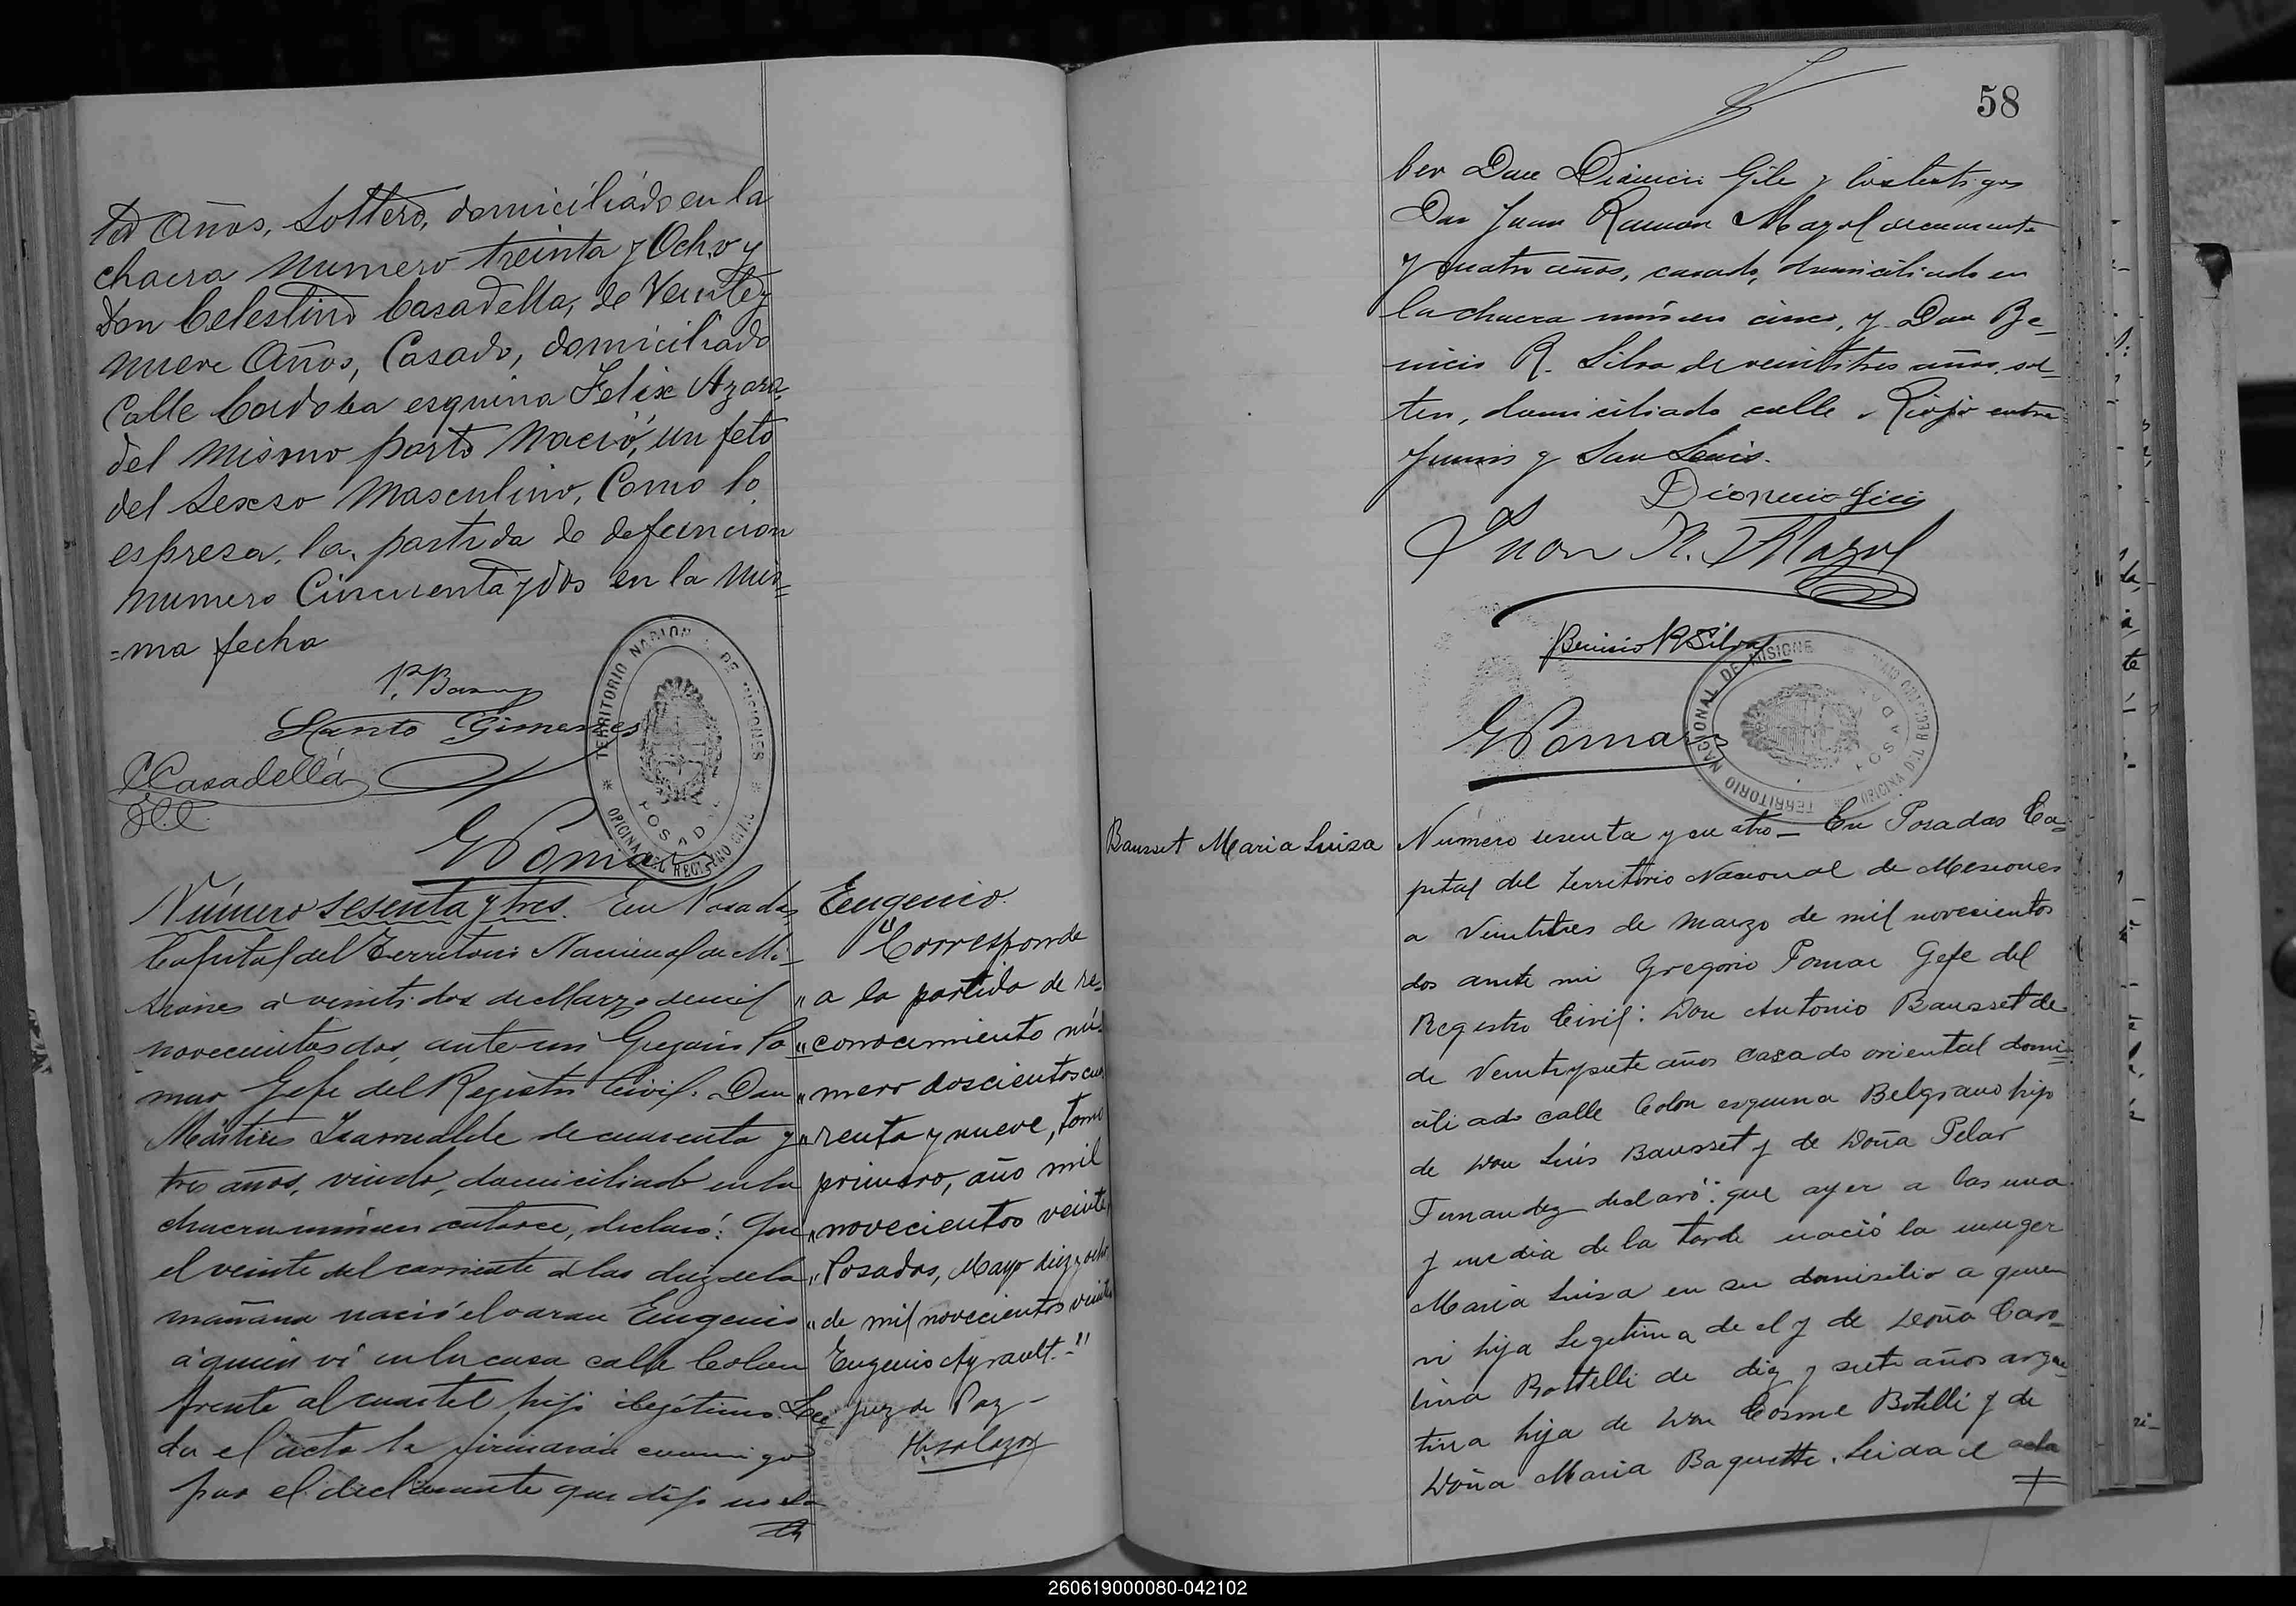 ta Años, Soltero, domiciliado en la
chacra numero treinta y Ocho y
Don Celestino Casadella, de Veinte y
nueve Años, Casado, domiciliado
Calle Cordoba esquina Felix Azara,
del mismo parto Nació, un feto
del sexso Masculino, Como lo
espresa, la, partida de defuncion
numero Cincuenta y dos en la mis=
=ma fecha
Santo Gimenes
CCasadellá
GPomar
TERRITORIO NACIONAL DE MISIONES
OFICINA DEL REGISTRO CIVIL
POSADAS
Número sesenta y tres. En Posadas
Capital del Territorio Nacional de Mi-
siones á veinti dos de Marzo de mil
novecientos dos, ante mi Gregorio Po
mar Gefe del Registro Civil: Don
Mártires de cuarenta y
tres años, viudo, domiciliado en la
chacra número catorce, declaró: Que
el veinte del corriente á las diez de la
mañana nació el varon Eugenio
á quien ví en la casa calle Colon
frente al cuartel hijo ilegítimo. Lei
da el acta la firmarán conmigo
por el declarante que dijo no sa
Eugenio
"Corresponde
" a la partida de re-
" conocimiento nú-
" mero doscientos cua
" renta y nueve, tomo
primero, año mil
" novecientos veinte,
" Posadas, Mayo diez y ocho
" de mil novecientos veinte
Eugenio Ayrault.-"
Juez de Paz-
58
ber Don Dionicio Gile y los testigos
Don Juan Ramon Mazol de cuarenta
y cuatro años, casado, domiciliado en
la chacra número cinco, y Don Be-
nicio R. Silva de veintitres años, sol-
tero, domiciliado calle Rioja entre
Junin y San Luis.
Juan R. Mazol
Benicio R Silva
GPomar
TERRITORIO NACIONAL DE MISIONES
OFICINA DEL REGISTRO CIVIL
POSADAS
Bausset Maria Luisa
Número sesenta y cuatro- En Posadas Ca-
pital del territorio Nacional de Misiones
a Veintitres de Marzo de mil novecientos
dos ante mi Gregorio Pomar Gefe del
Registro Civil: Don Antonio Bausset de
de Veintysiete años casado oriental domi-
ciliado calle Colon esquina Belgrano hijo
de Don Luis Bausset y de Doña Pelar
Fernandez declaró: que ayer a las una
y media de la tarde nació la muger
Maria Luisa en su domisilio a quien
vi hija Legetima de el y de Doña Caro-
lina Bottelli de diez y siete años argen-
tina hija de Don Cosme Botelli y de
Doña Maria Baquette. Leida el acta
260619000080-042102